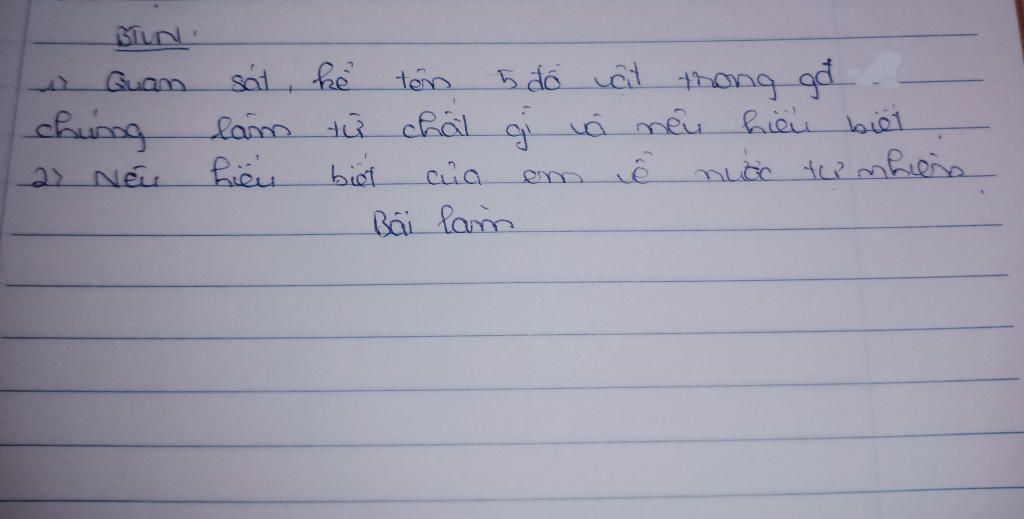 BTVN:
1) Quan sát, kể tên 5 đồ vật trong gđ
chúng làm từ chất gì và nêu hiểu biết
2) Nêu hiểu biết của em về nước tự nhiên.
Bài làm